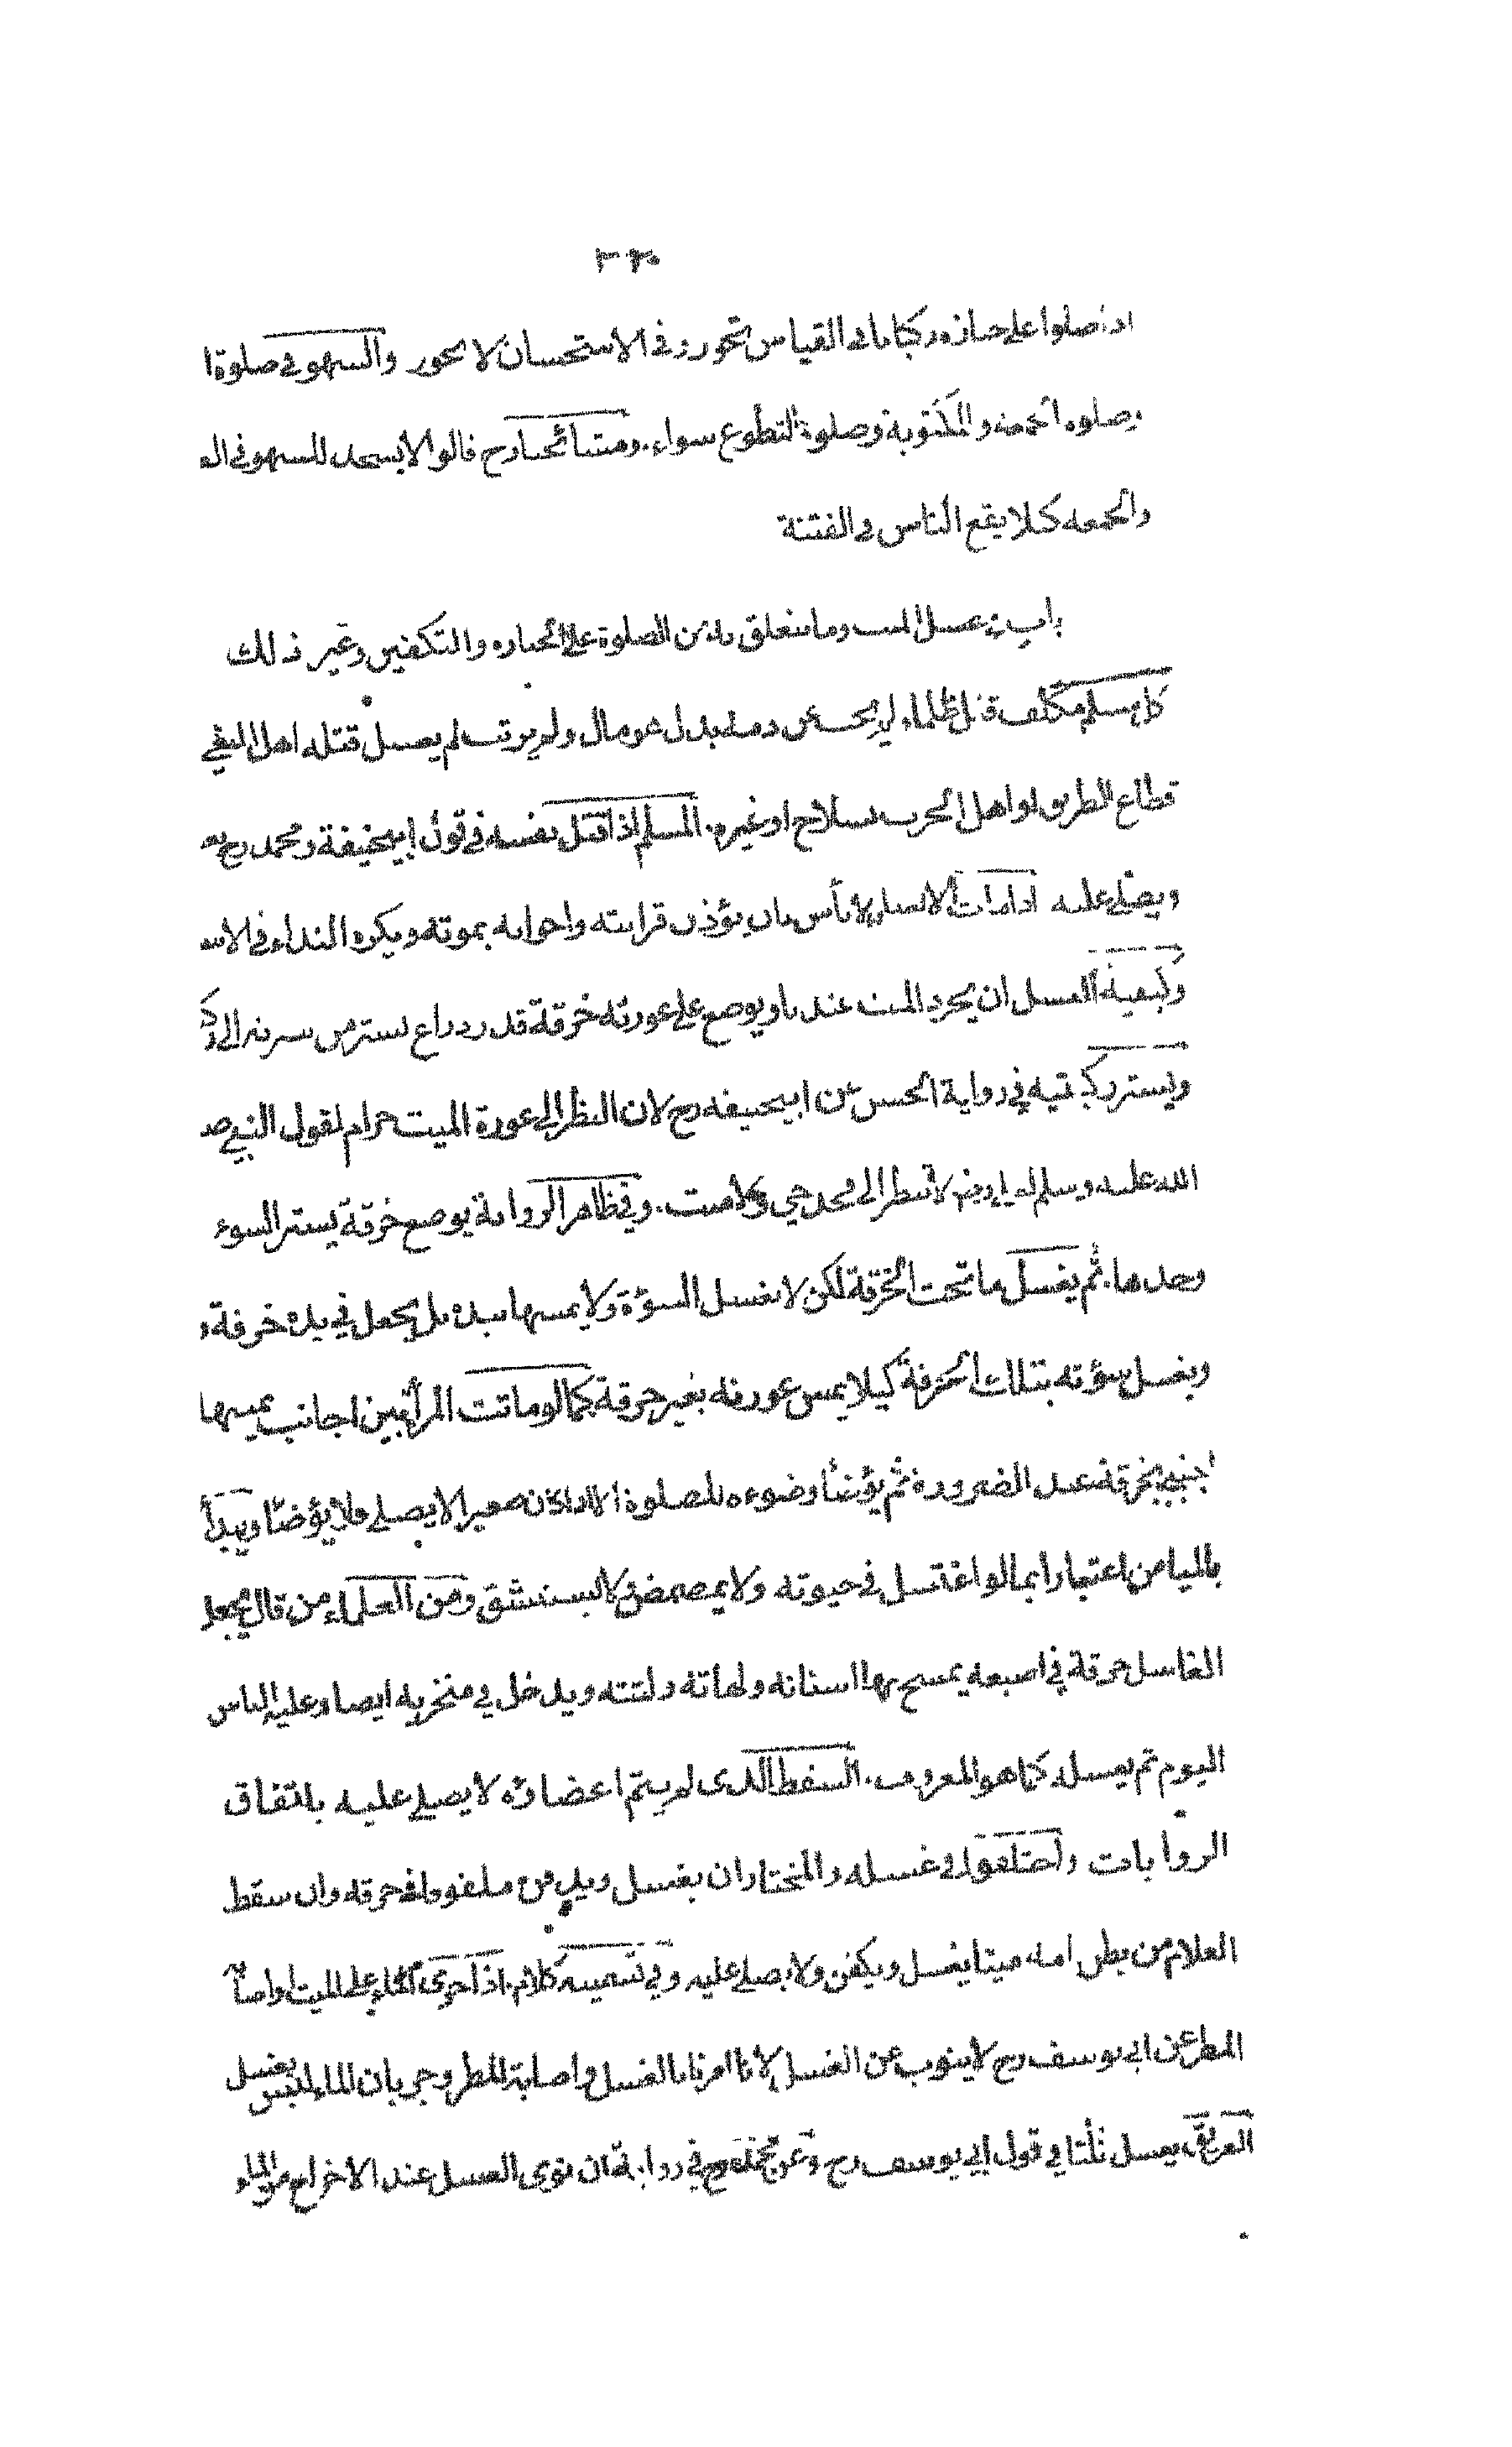 اذا صلوا على جنازة ركبانا في القياس تجوز وفي الاستحسان لا يجوز والسهو في صلوة ا
وصلوة الجمعة والمكتوبة وصلوة التطوع سواء. ومشائخنا رح قالوا لا يسجد للسهو في الع
والجمعة كيلا يقع الناس في الفتنة
باب في غسل الميت وما يتعلق به من الصلوة على الجنازة والتكفين وغير ذلك
كل مسلم مكلف قتل ظلما ولم يجب عن دمه بدل هو مال ولم يرتث لم يغسل قتله اهل البغي
قطاع الطريق او اهل الحرب بسلاح او غيره. المسلم اذا قتل نفسه في قول ابيحنيفة ومحمد رح يغ
ويصلى عليه اذا مات الانسان لا بأس بان يؤذن قرابته واخوانه بموته ويكره النداء في الاس
وكيفية الغسل ان يجرد الميت عندنا ويوضع على عورته خرقة قدر ذراع يستر من سرته الى رك
ويستر ركبتيه في رواية الحسن عن ابيحنيفه رح لان النظر الى عورة الميت حرام لقول النبي صل
الله عليه وسلم لعلي رضه لا تنظر الى فخد حي ولا ميت. وفي ظاهر الرواية يوضع خرقة يستر السوء
وحدها. ثم يغسل ما تحت الخرقة لكن لا يغسل السوءة ولا يمسها بيده بل يجعل في يده خرقة و
ويغسل سؤته بتلك الخرقة كيلا يمس عورته بغير خرقة كما لو ماتت المرأة بين اجانب يمسها
اجنبي بخرقة عند الضرورة ثم يؤضأ وضوءه للصلوة الا اذا كان صغيرا لا يصلي فلا يؤضأ ويبدأ
بالميامن اعتبارا بما لو اغتسل في حيوته ولا يمضمض ولا يستنشق ومن العلماء من قال يجعل
الغاسل خرقة في اصبعه يمسح بها اسنانه ولهاته ولثته ويدخل في منخريه ايضا وعليه الناس
اليوم ثم يغسله كما هو المعروف. السقط الذى لم يتم اعضاؤه لا يصلي عليه باتفاق
الروايات واختلفوا في غسله والمختار ان يغسل ويدفن ملفوفا في خرقة وان سقط
الغلام من بطن امه ميتا يغسل ويكفن ولا يصلي عليه وفي تسميته كلام. اذا جرى الماء على الميت او اصابه
المطر عن ابي يوسف رح لا ينوب عن الغسل لانا امرنا بالغسل واصابة المطر وجريان الماء ليس بغسل
الغريق يغسل ثلثا في قول ابي يوسف رح وعن محمد رح في رواية ان نوى الغسل عند الاخراج من الماء